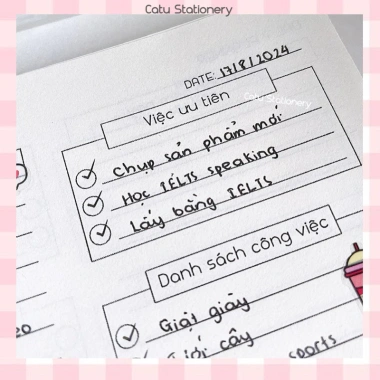 Catu Stationery
DATE: 17/8/2024
Việc ưu tiên
Catu Stationery
Chụp sản phẩm mới
Học IELTS speaking
Lấy bằng IELTS
Danh sách công việc
Giặt giày
cây
sports